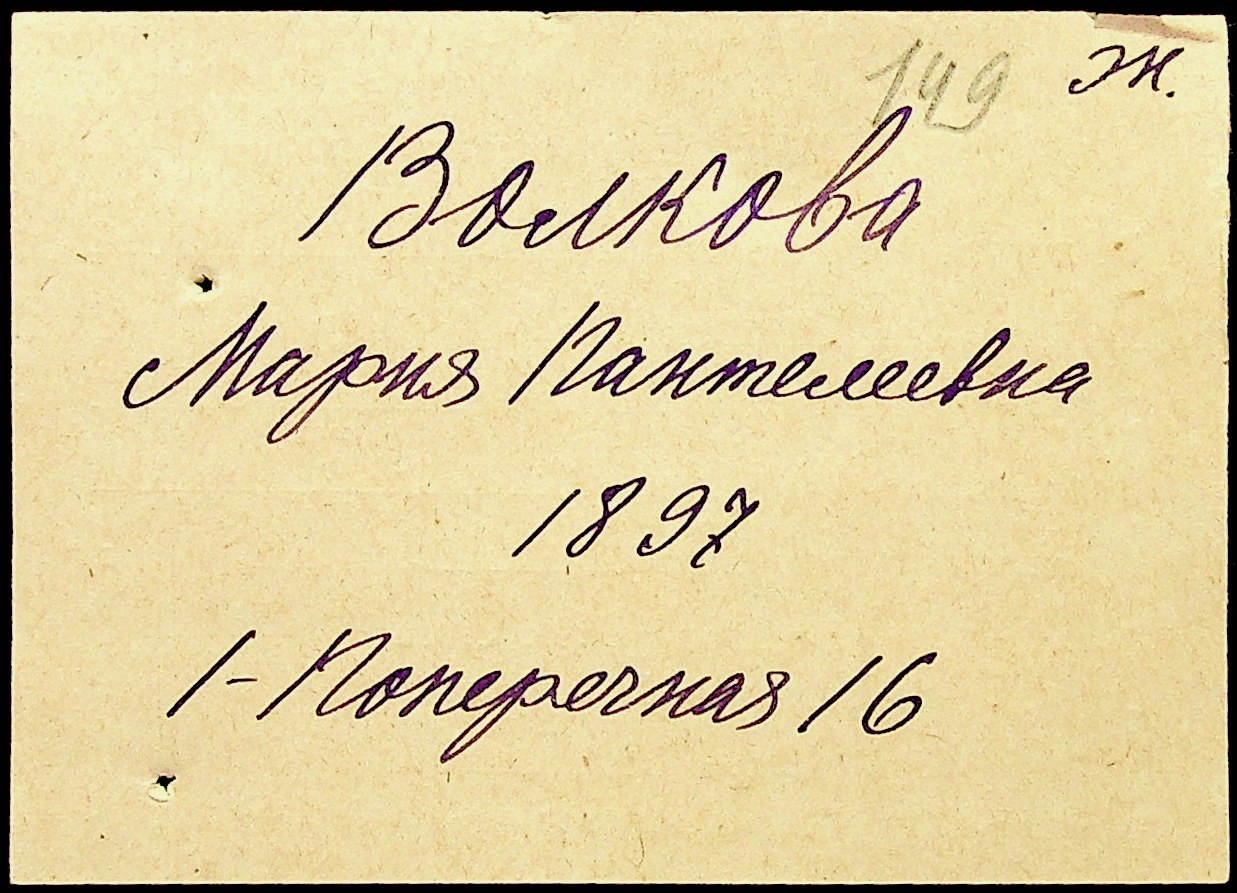 149 ж.
Волкова
Мария Пантелеевна
1897
1-Поперечная 16